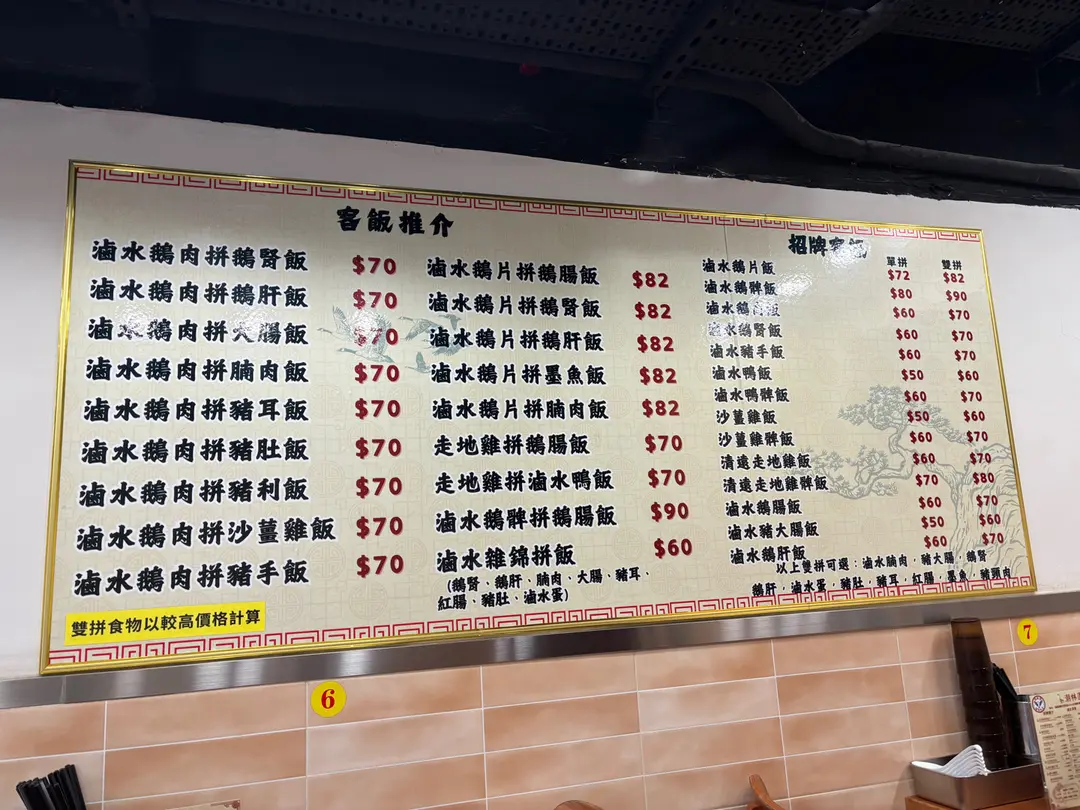 客飯推介
滷水鵝肉拼鵝腎飯 $70
滷水鵝肉拼鵝肝飯 $70
滷水鵝肉拼大腸飯 $70
滷水鵝肉拼腩肉飯 $70
滷水鵝肉拼豬耳飯 $70
滷水鵝肉拼豬肚飯 $70
滷水鵝肉拼豬利飯 $70
滷水鵝肉拼沙薑雞飯 $70
滷水鵝肉拼豬手飯 $70
雙拼食物以較高價格計算
滷水鵝片拼鵝腸飯 $82
滷水鵝片拼鵝腎飯 $82
滷水鵝片拼鵝肝飯 $82
滷水鵝片拼墨魚飯 $82
滷水鵝片拼腩肉飯 $82
走地雞拼鵝腸飯 $70
走地雞拼滷水鴨飯 $70
滷水鵝髀拼鵝腸飯 $90
滷水雜錦拼飯 $60
(鵝腎、鵝肝、腩肉、大腸、豬耳、
紅腸、豬肚、滷水蛋)
招牌客飯
單拼 雙拼
滷水鵝片飯 $72 $82
滷水鵝髀飯 $80 $90
滷水鵝肉飯 $60 $70
滷水鵝腎飯 $60 $70
滷水豬手飯 $60 $70
滷水鴨飯 $50 $60
滷水鴨髀飯 $60 $70
沙薑雞飯 $50 $60
沙薑雞髀飯 $60 $70
清遠走地雞飯 $60 $70
清遠走地雞髀飯 $70 $80
滷水鵝腸飯 $60 $70
滷水豬大腸飯 $50 $60
滷水鵝肝飯 $60 $70
以上雙拼可選：滷水腩肉，豬大腸，鵝腎
鵝肝，滷水蛋，豬肚，豬耳，紅腸，墨魚，豬頭肉
6
7